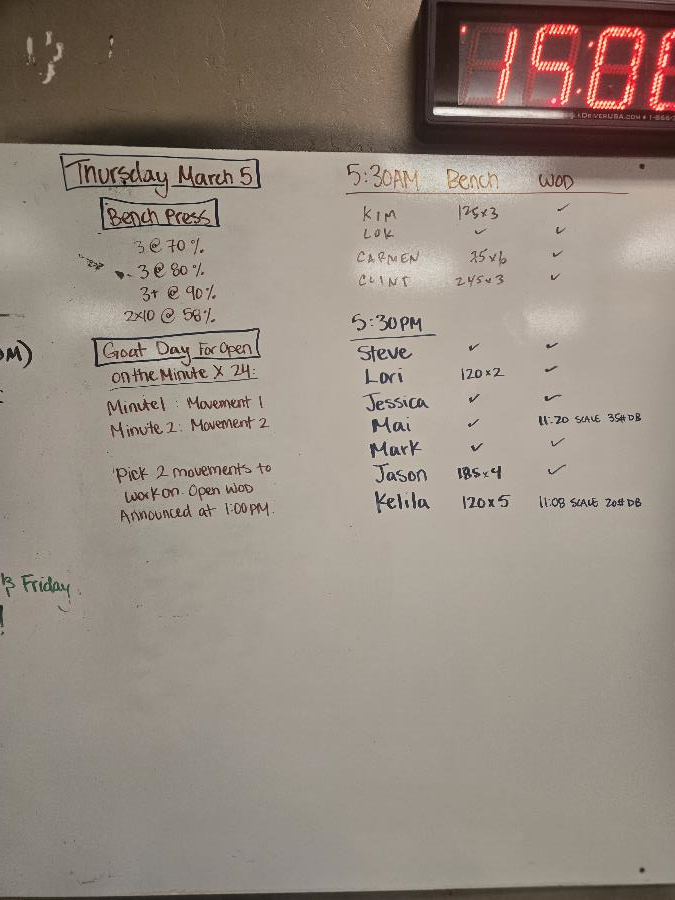 15:0
DRIVERUSA.COM • 1-866
Thursday March 5
Bench Press
3 @ 70%
3 @ 80%
3+ @ 90%
2x10 @ 58%
Goat Day For Open
on the Minute X 24:
Minute1 : Movement 1
Minute 2: Movement 2
Pick 2 movements to
work on. Open WOD
Announced at 1:00PM.
5:30AM Bench WOD
KIM 125x3 ✓
LOK ✓ ✓
CARMEN 75x6 ✓
CLINT 245x3 ✓
5:30PM
Steve ✓ ✓
Lori 120x2 ✓
Jessica ✓ ✓
Mai ✓ 11:20 SCALE 35# DB
Mark ✓ ✓
Jason 185x4 ✓
Kelila 120x5 11:08 SCALE 20# DB
M)
Friday.
!